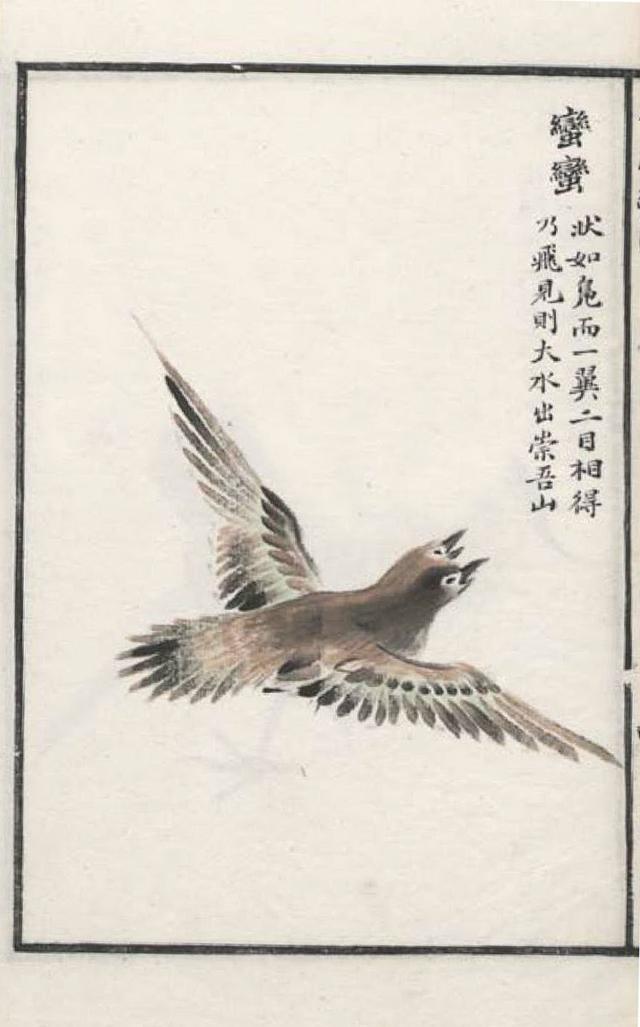 蠻蠻
狀如鳬而一翼二目相得
乃飛見則大水出崇吾山